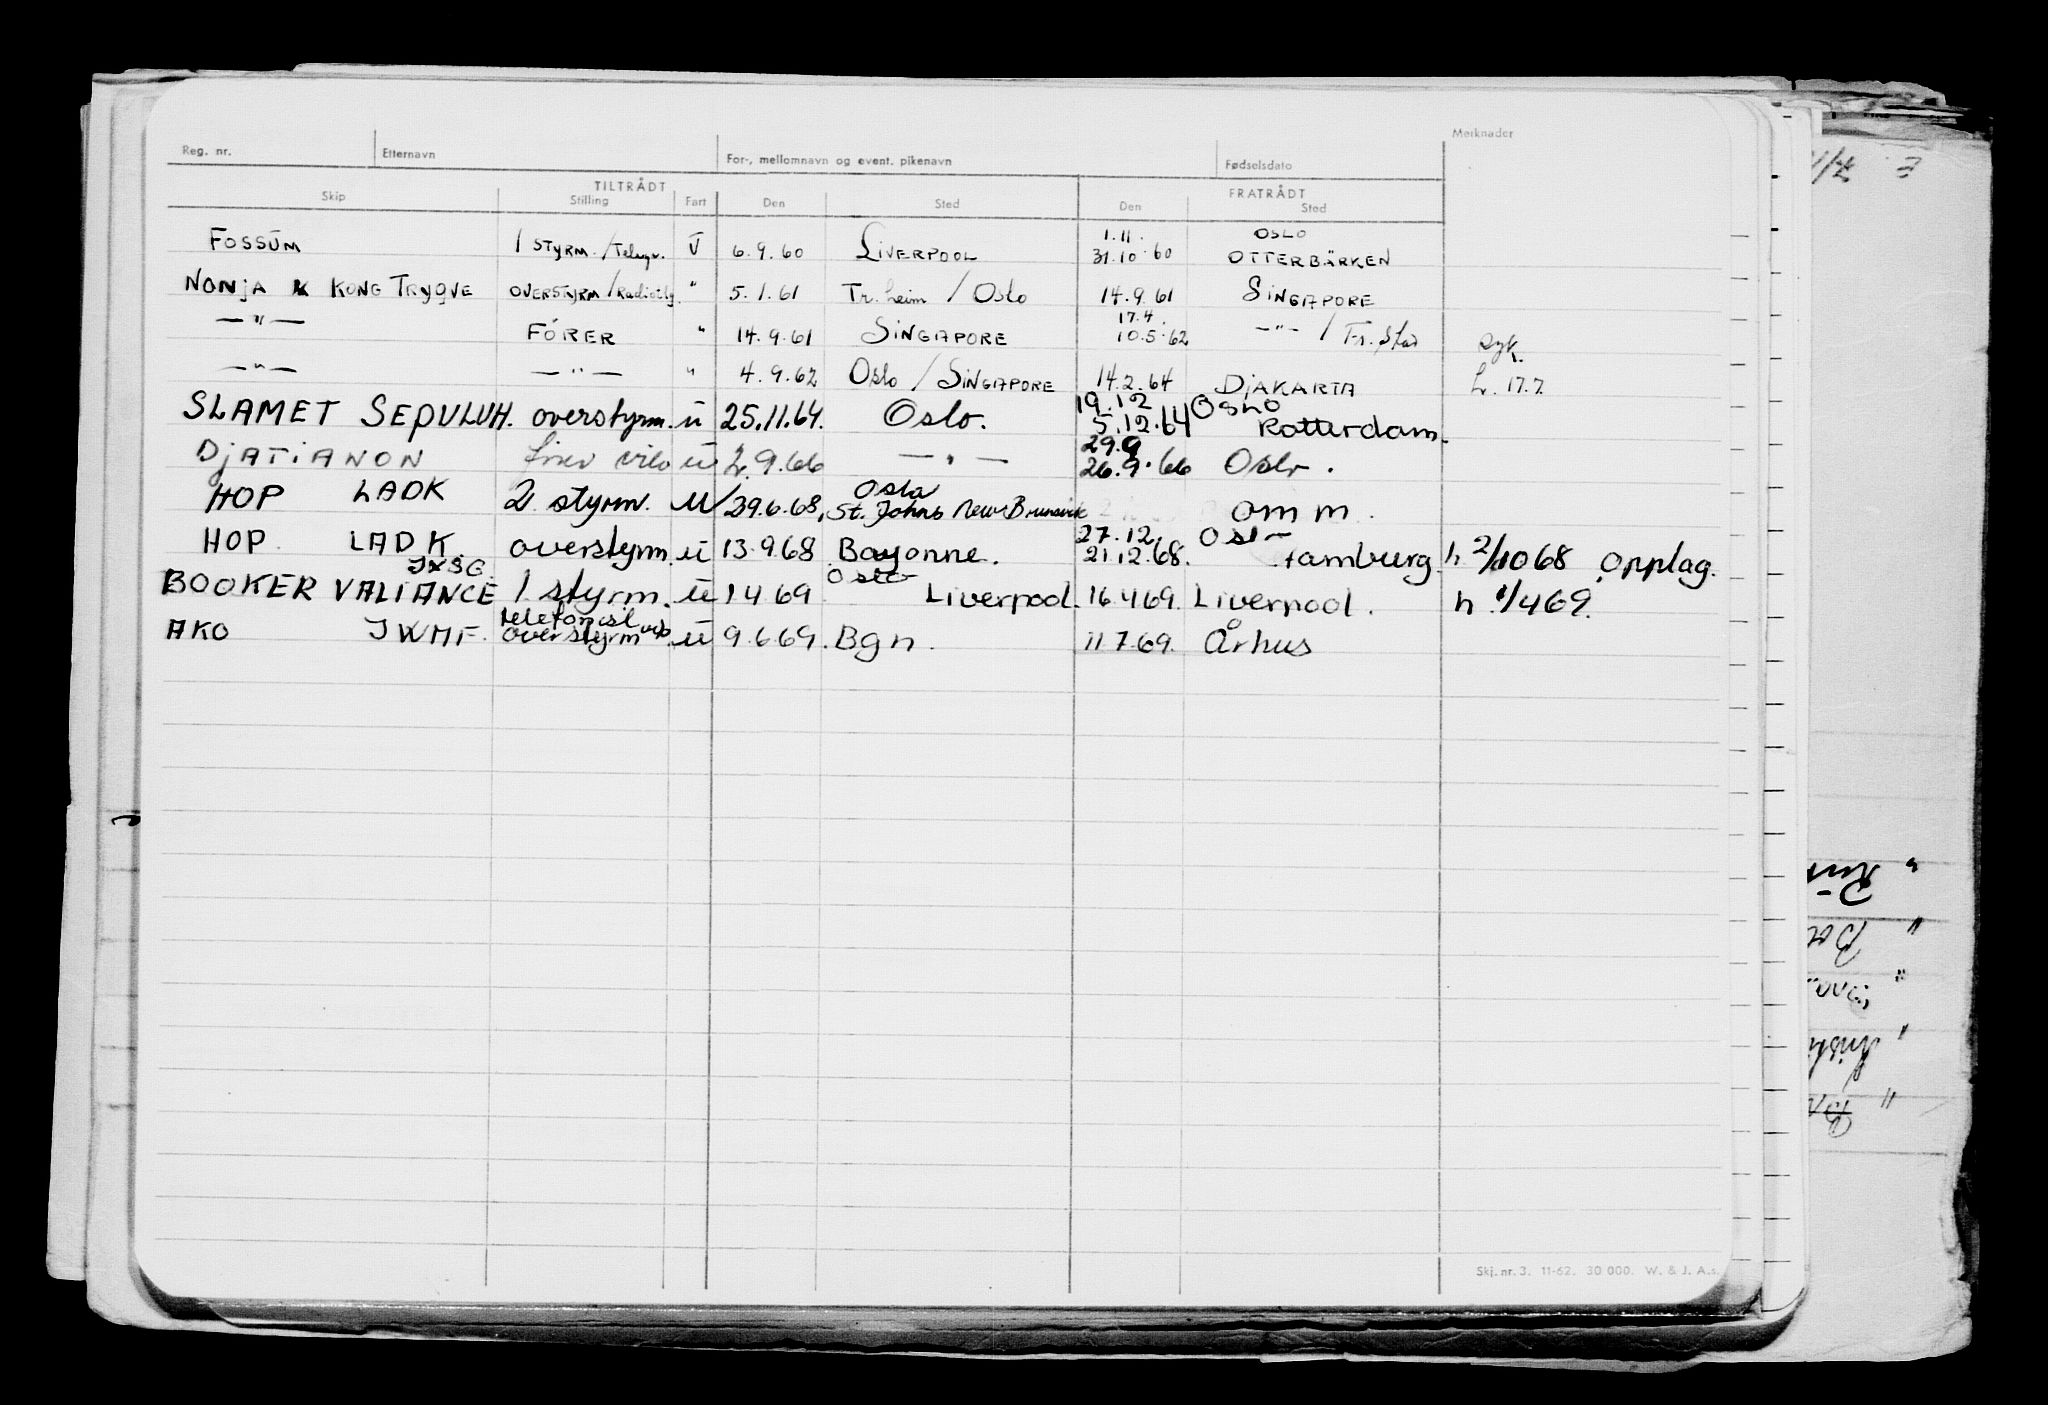 Merknader
Reg. nr. Etternavn For-, mellomnavn og event. pikenavn Fødselsdato
TILTRÅDT FRATRÅDT
Skip Stilling Fart Den Sted Den Sted
1.11. OSLO
FOSSUM 1 STYRM./Telegr. U 6.9.60 LIVERPOOL 31.10.60 OTTERBÄRKEN
NONJA KONG TRYGVE OVERSTYRM/Radiotlg. " 5.1.61 Tr.heim / Oslo 14.9.61 SINGAPORE
17.4.
—"— FÖRER " 14.9.61 SINGAPORE 10.5.62 —"— / Fr.stad syk.
—"— —"— " 4.9.62 Oslo / SINGAPORE 14.2.64 DJAKARTA h. 17.7.
19.12 OSLO
SLAMET SEPULUH. overstyrm. u 25.11.64. Oslo. 5.12.64 Rotterdam.
29.9
DJATIANON u 2.9.66 —"— 26.9.66 Oslo.
Oslo
HOP LADK 2 styrm. u 29.6.68. St. Johns New Brunsvik omm.
27.12. Oslo
HOP. LADK. overstyrm. u 13.9.68 Bayonne. 21.12.68. Hamburg. h 2/1068 opplag.
JXSG. Oslo
BOOKER VALIANCE 1 styrm. u 1 4 69 Liverpool. 16.4.69. Liverpool. h. 1/469.
telefonist
AKO JWMF. overstyrm u 9.6.69. Bgn. 11 7.69. Århus
Skj. nr. 3. 11-62. 30 000. W. & J. A.s.